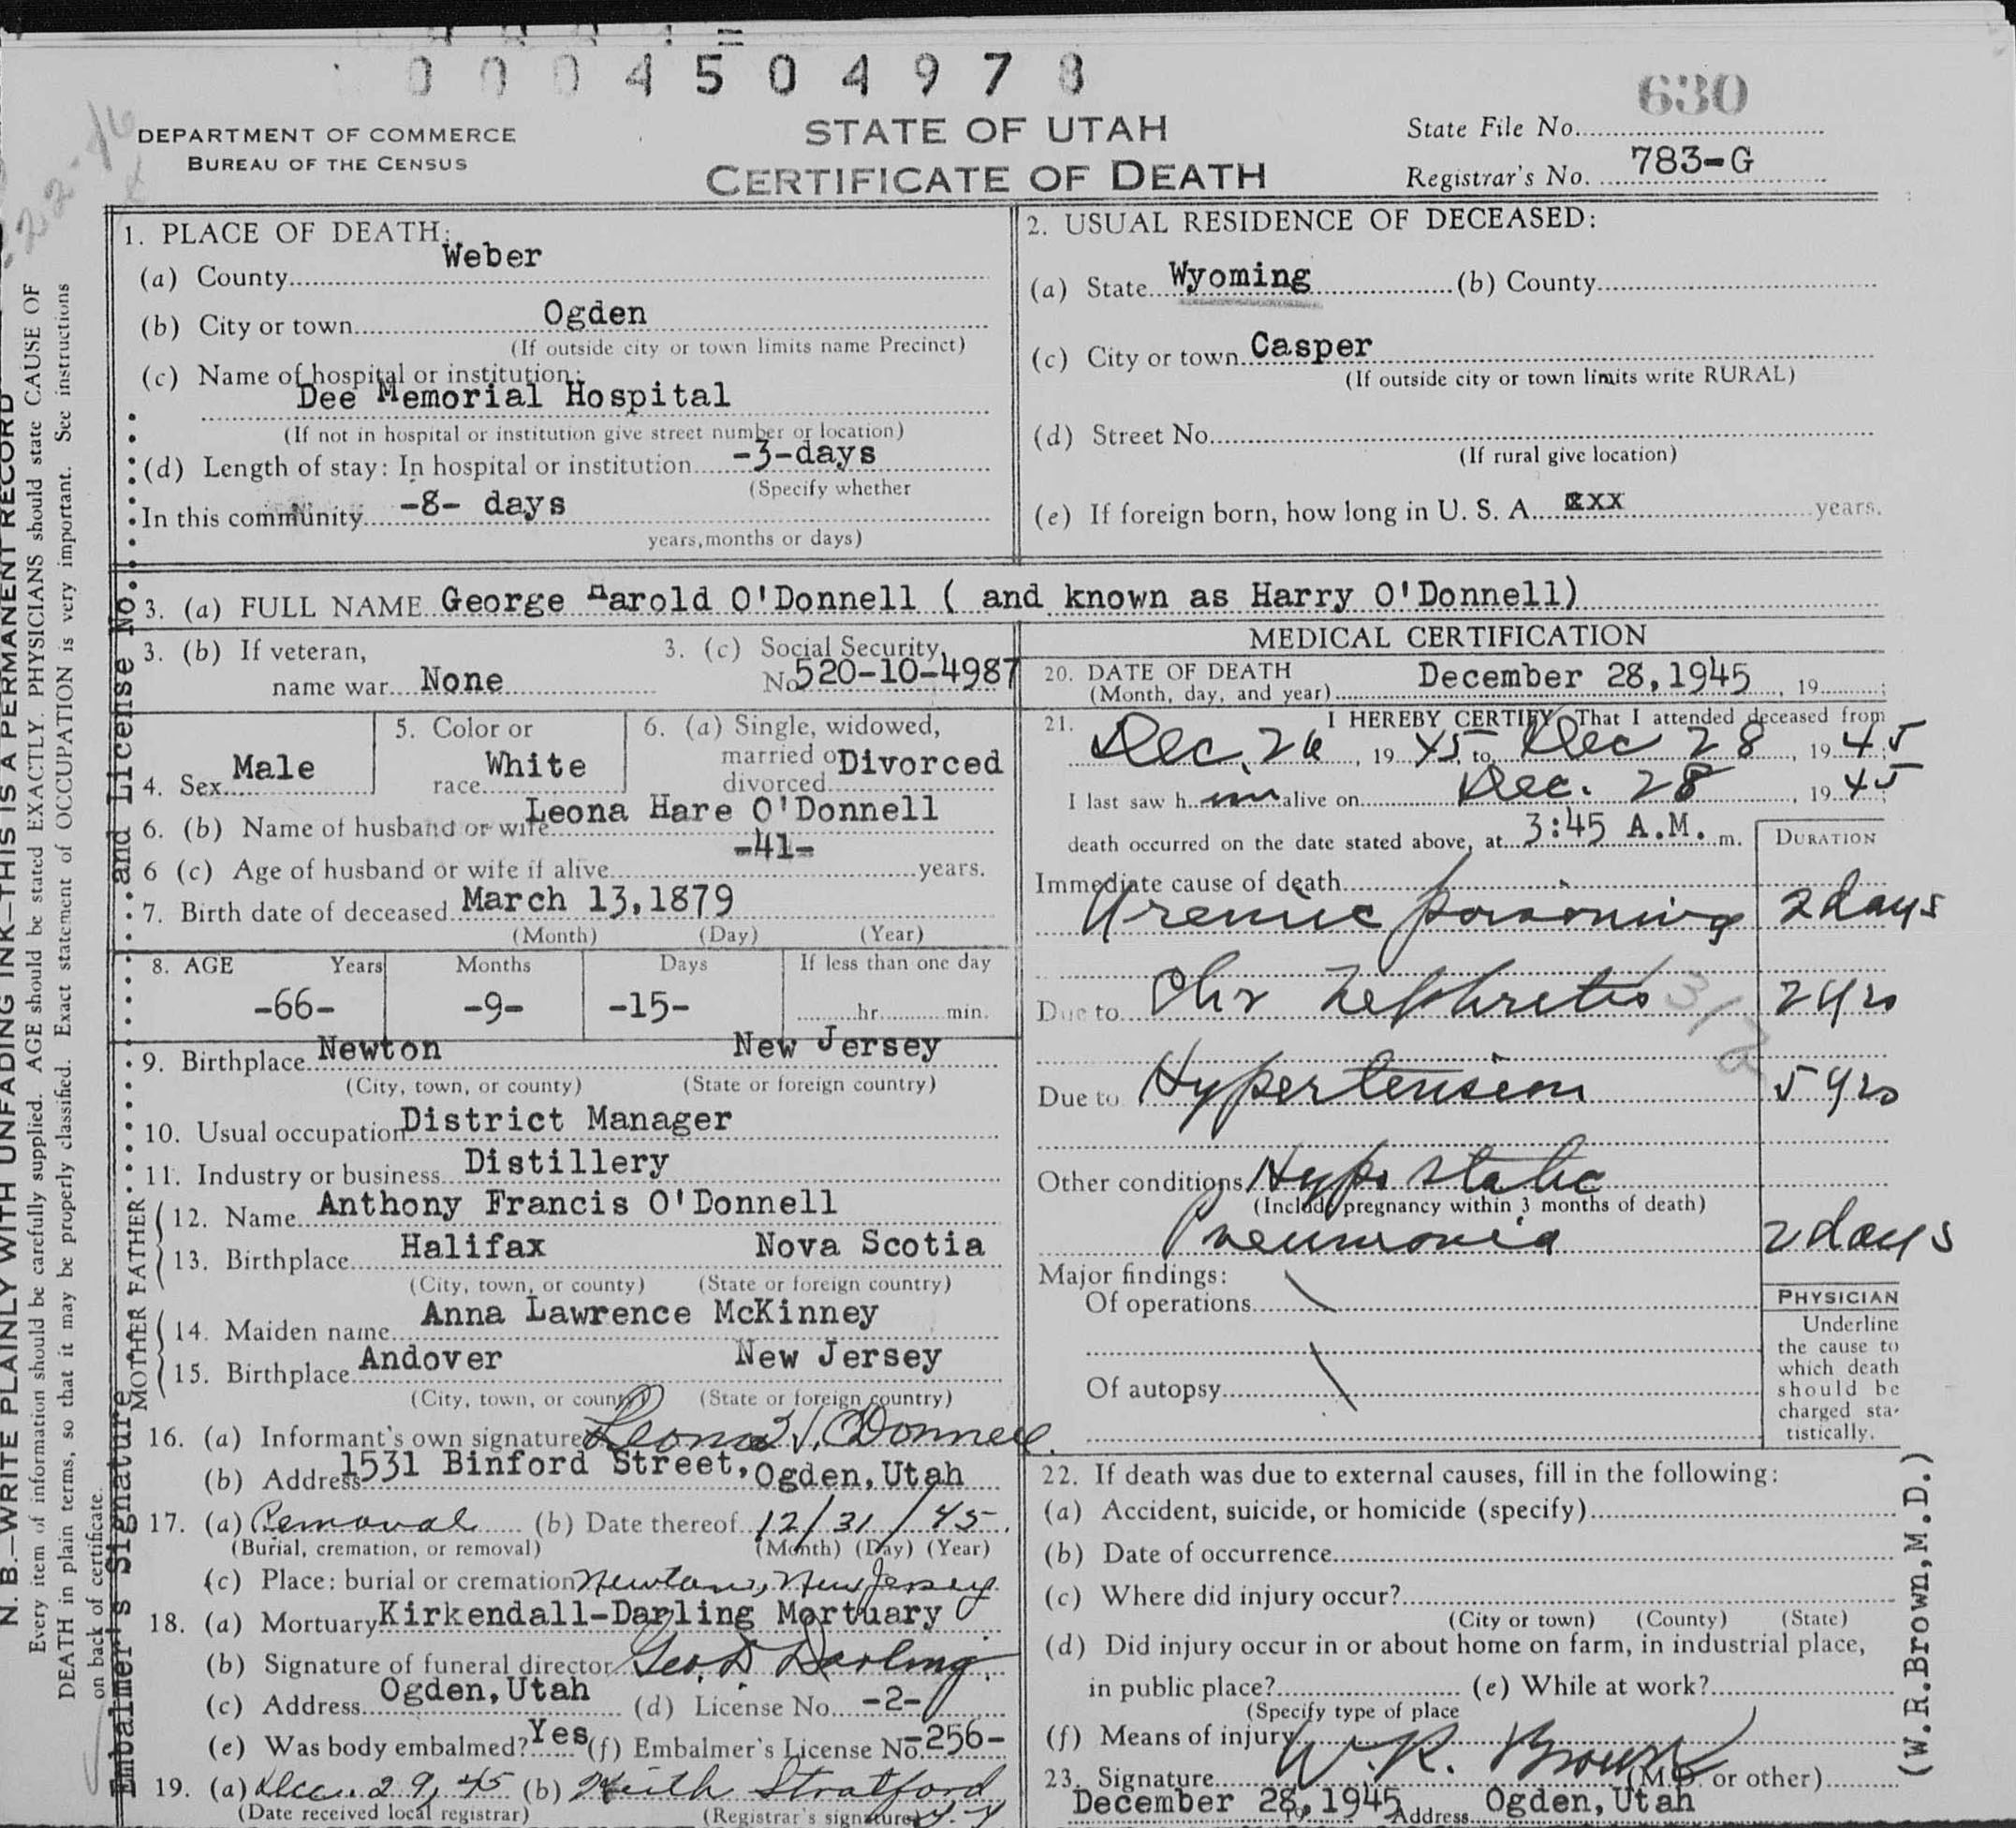 0004504978
630
DEPARTMENT OF COMMERCE
BUREAU OF THE CENSUS
STATE OF UTAH
CERTIFICATE OF DEATH
State File No.
Registrar's No. 783-G
1. PLACE OF DEATH:
(a) County Weber
(b) City or town Ogden
(If outside city or town limits name Precinct)
(c) Name of hospital or institution:
Dee Memorial Hospital
(If not in hospital or institution give street number or location)
(d) Length of stay: In hospital or institution -3-days
(Specify whether
In this community -8- days
years, months or days)
2. USUAL RESIDENCE OF DECEASED:
(a) State Wyoming (b) County
(c) City or town Casper
(If outside city or town limits write RURAL)
(d) Street No.
(If rural give location)
(e) If foreign born, how long in U. S. A. xxx years.
3. (a) FULL NAME George Harold O'Donnell ( and known as Harry O'Donnell)
3. (b) If veteran,
name war None
3. (c) Social Security
No 520-10-4987
4. Sex Male
5. Color or
race White
6. (a) Single, widowed,
married or
divorced Divorced
6. (b) Name of husband or wife Leona Hare O'Donnell
6 (c) Age of husband or wife if alive -41- years.
7. Birth date of deceased March 13,1879
(Month) (Day) (Year)
8. AGE Years Months Days If less than one day
-66- -9- -15- hr. min.
9. Birthplace Newton New Jersey
(City, town, or county) (State or foreign country)
10. Usual occupation District Manager
11. Industry or business Distillery
FATHER
12. Name Anthony Francis O'Donnell
13. Birthplace Halifax Nova Scotia
(City, town, or county) (State or foreign country)
MOTHER
14. Maiden name Anna Lawrence McKinney
15. Birthplace Andover New Jersey
(City, town, or county) (State or foreign country)
16. (a) Informant's own signature Leona H. O'Donnell
(b) Address 1531 Binford Street, Ogden, Utah
17. (a) Removal (b) Date thereof 12/31/45
(Burial, cremation, or removal) (Month) (Day) (Year)
(c) Place: burial or cremation Newton, New Jersey
18. (a) Mortuary Kirkendall-Darling Mortuary
(b) Signature of funeral director Geo. D. Darling
(c) Address Ogden, Utah (d) License No. -2-
(e) Was body embalmed? Yes (f) Embalmer's License No. -256-
19. (a) Dec. 29, 45 (b) Keith Stratford
(Date received local registrar) (Registrar's signature)
MEDICAL CERTIFICATION
20. DATE OF DEATH
(Month, day, and year) December 28,1945, 19 ;
21. I HEREBY CERTIFY, That I attended deceased from
Dec. 26, 1945, to Dec 28, 1945;
I last saw him alive on Dec. 28, 1945;
death occurred on the date stated above, at 3:45 A.M. m.
DURATION
Immediate cause of death
Uremic poisoning 2 days
Due to Chr Nephritis 2 yrs
Due to Hypertension 5 yrs
Other conditions Hypostatic
(Include pregnancy within 3 months of death)
Pneumonia 2 days
Major findings:
Of operations
Of autopsy
PHYSICIAN
Underline
the cause to
which death
should be
charged sta-
tistically.
22. If death was due to external causes, fill in the following:
(a) Accident, suicide, or homicide (specify)
(b) Date of occurrence
(c) Where did injury occur?
(City or town) (County) (State)
(d) Did injury occur in or about home on farm, in industrial place,
in public place? (e) While at work?
(Specify type of place
(f) Means of injury
23. Signature W. R. Brown (M.D. or other)
December 28, 1945 Address Ogden, Utah
(W.R.Brown,M.D.)
N. B.—WRITE PLAINLY WITH UNFADING INK—THIS IS A PERMANENT RECORD
Every item of information should be carefully supplied. AGE should be stated EXACTLY. PHYSICIANS should state CAUSE OF
DEATH in plain terms, so that it may be properly classified. Exact statement of OCCUPATION is very important. See instructions
on back of certificate.
Embalmer's Signature and License No.